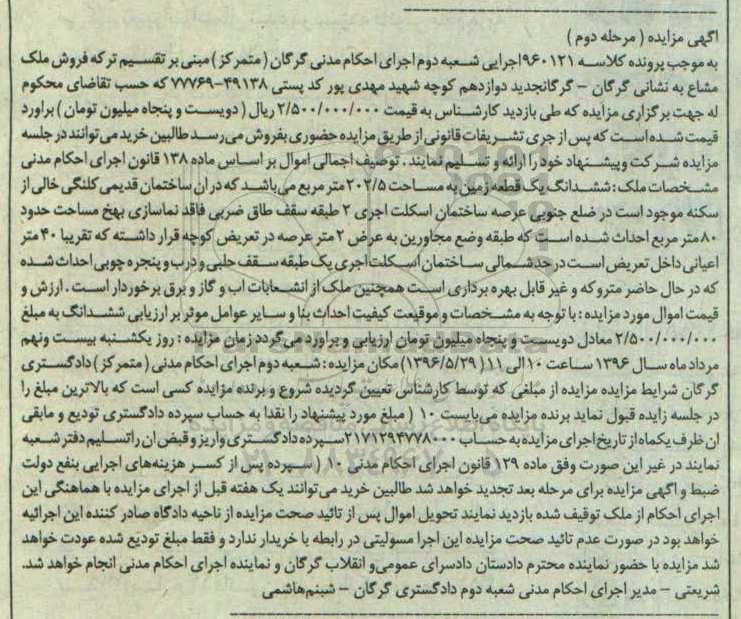 آگهی مزایده (مرحله دوم)
به موجب پرونده کلاسه ۹۶۰۱۲۱ اجرایی شعبه دوم اجرای احکام مدنی گرگان (متمرکز) مبنی بر تقسیم ترکه فروش ملک
مشاع به نشانی گرگان – گرگانجدید دوازدهم کوچه شهید مهدی پور کد پستی ۴۹۱۳۸-۷۷۷۶۹ که حسب تقاضای محکوم
له جهت برگزاری مزایده که طی بازدید کارشناس به قیمت ۲/۵۰۰/۰۰۰/۰۰۰ ریال (دویست و پنجاه میلیون تومان) براورد
قیمت شده است که پس از جری تشریفات قانونی از طریق مزایده حضوری بفروش می‌رسد طالبین خرید می‌توانند در جلسه
مزایده شرکت و پیشنهاد خود را ارائه و تسلیم نمایند. توصیف اجمالی اموال بر اساس ماده ۱۳۸ قانون اجرای احکام مدنی
مشخصات ملک: ششدانگ یک قطعه زمین به مساحت ۲۰۲/۵ متر مربع می‌باشد که در ان ساختمان قدیمی کلنگی خالی از
سکنه موجود است در ضلع جنوبی عرصه ساختمان اسکلت اجری ۲ طبقه سقف طاق ضربی فاقد نماسازی بهخ مساحت حدود
۸۰ متر مربع احداث شده است که طبقه وضع مجاورین به عرض ۲ متر عرصه در تعریض کوچه قرار داشته که تقریبا ۴۰ متر
اعیانی داخل تعریض است در حد شمالی ساختمان اسکلت اجری یک طبقه سقف حلبی و درب و پنجره چوبی احداث شده
که در حال حاضر متروکه و غیر قابل بهره برداری است همچنین ملک از انشعابات اب و گاز و برق برخوردار است. ارزش و
قیمت اموال مورد مزایده: با توجه به مشخصات و موقیعت کیفیت احداث بنا و سایر عوامل موثر بر ارزیابی ششدانگ به مبلغ
۲/۵۰۰/۰۰۰/۰۰۰ معادل دویست و پنجاه میلیون تومان ارزیابی و براورد می‌گردد زمان مزایده: روز یکشنبه بیست ونهم
مرداد ماه سال ۱۳۹۶ ساعت ۱۰ الی ۱۱ (۱۳۹۶/۵/۲۹) مکان مزایده: شعبه دوم اجرای احکام مدنی (متمرکز) دادگستری
گرگان شرایط مزایده مزایده از مبلغی که توسط کارشناس تعیین گردیده شروع و برنده مزایده کسی است که بالاترین مبلغ را
در جلسه زایده قبول نماید برنده مزایده می‌بایست ۱۰ ( مبلغ مورد پیشنهاد را نقدا به حساب سپرده دادگستری تودیع و مابقی
ان ظرف یکماه از تاریخ اجرای مزایده به حساب ۲۱۷۱۲۹۴۷۷۸۰۰۰ سپرده دادگستری واریز و قبض ان را تسلیم دفتر شعبه
نمایند در غیر این صورت وفق ماده ۱۲۹ قانون اجرای احکام مدنی ۱۰ ( سپرده پس از کسر هزینه‌های اجرایی بنفع دولت
ضبط و اگهی مزایده برای مرحله بعد تجدید خواهد شد طالبین خرید می‌توانند یک هفته قبل از اجرای مزایده با هماهنگی این
اجرای احکام از ملک توقیف شده بازدید نمایند تحویل اموال پس از تائید صحت مزایده از ناحیه دادگاه صادر کننده این اجرائیه
خواهد بود در صورت عدم تائید صحت مزایده این اجرا مسولیتی در رابطه با خریدار ندارد و فقط مبلغ تودیع شده عودت خواهد
شد مزایده با حضور نماینده محترم دادستان دادسرای عمومی‌و انقلاب گرگان و نماینده اجرای احکام مدنی انجام خواهد شد.
شریعتی – مدیر اجرای احکام مدنی شعبه دوم دادگستری گرگان – شبنم‌هاشمی